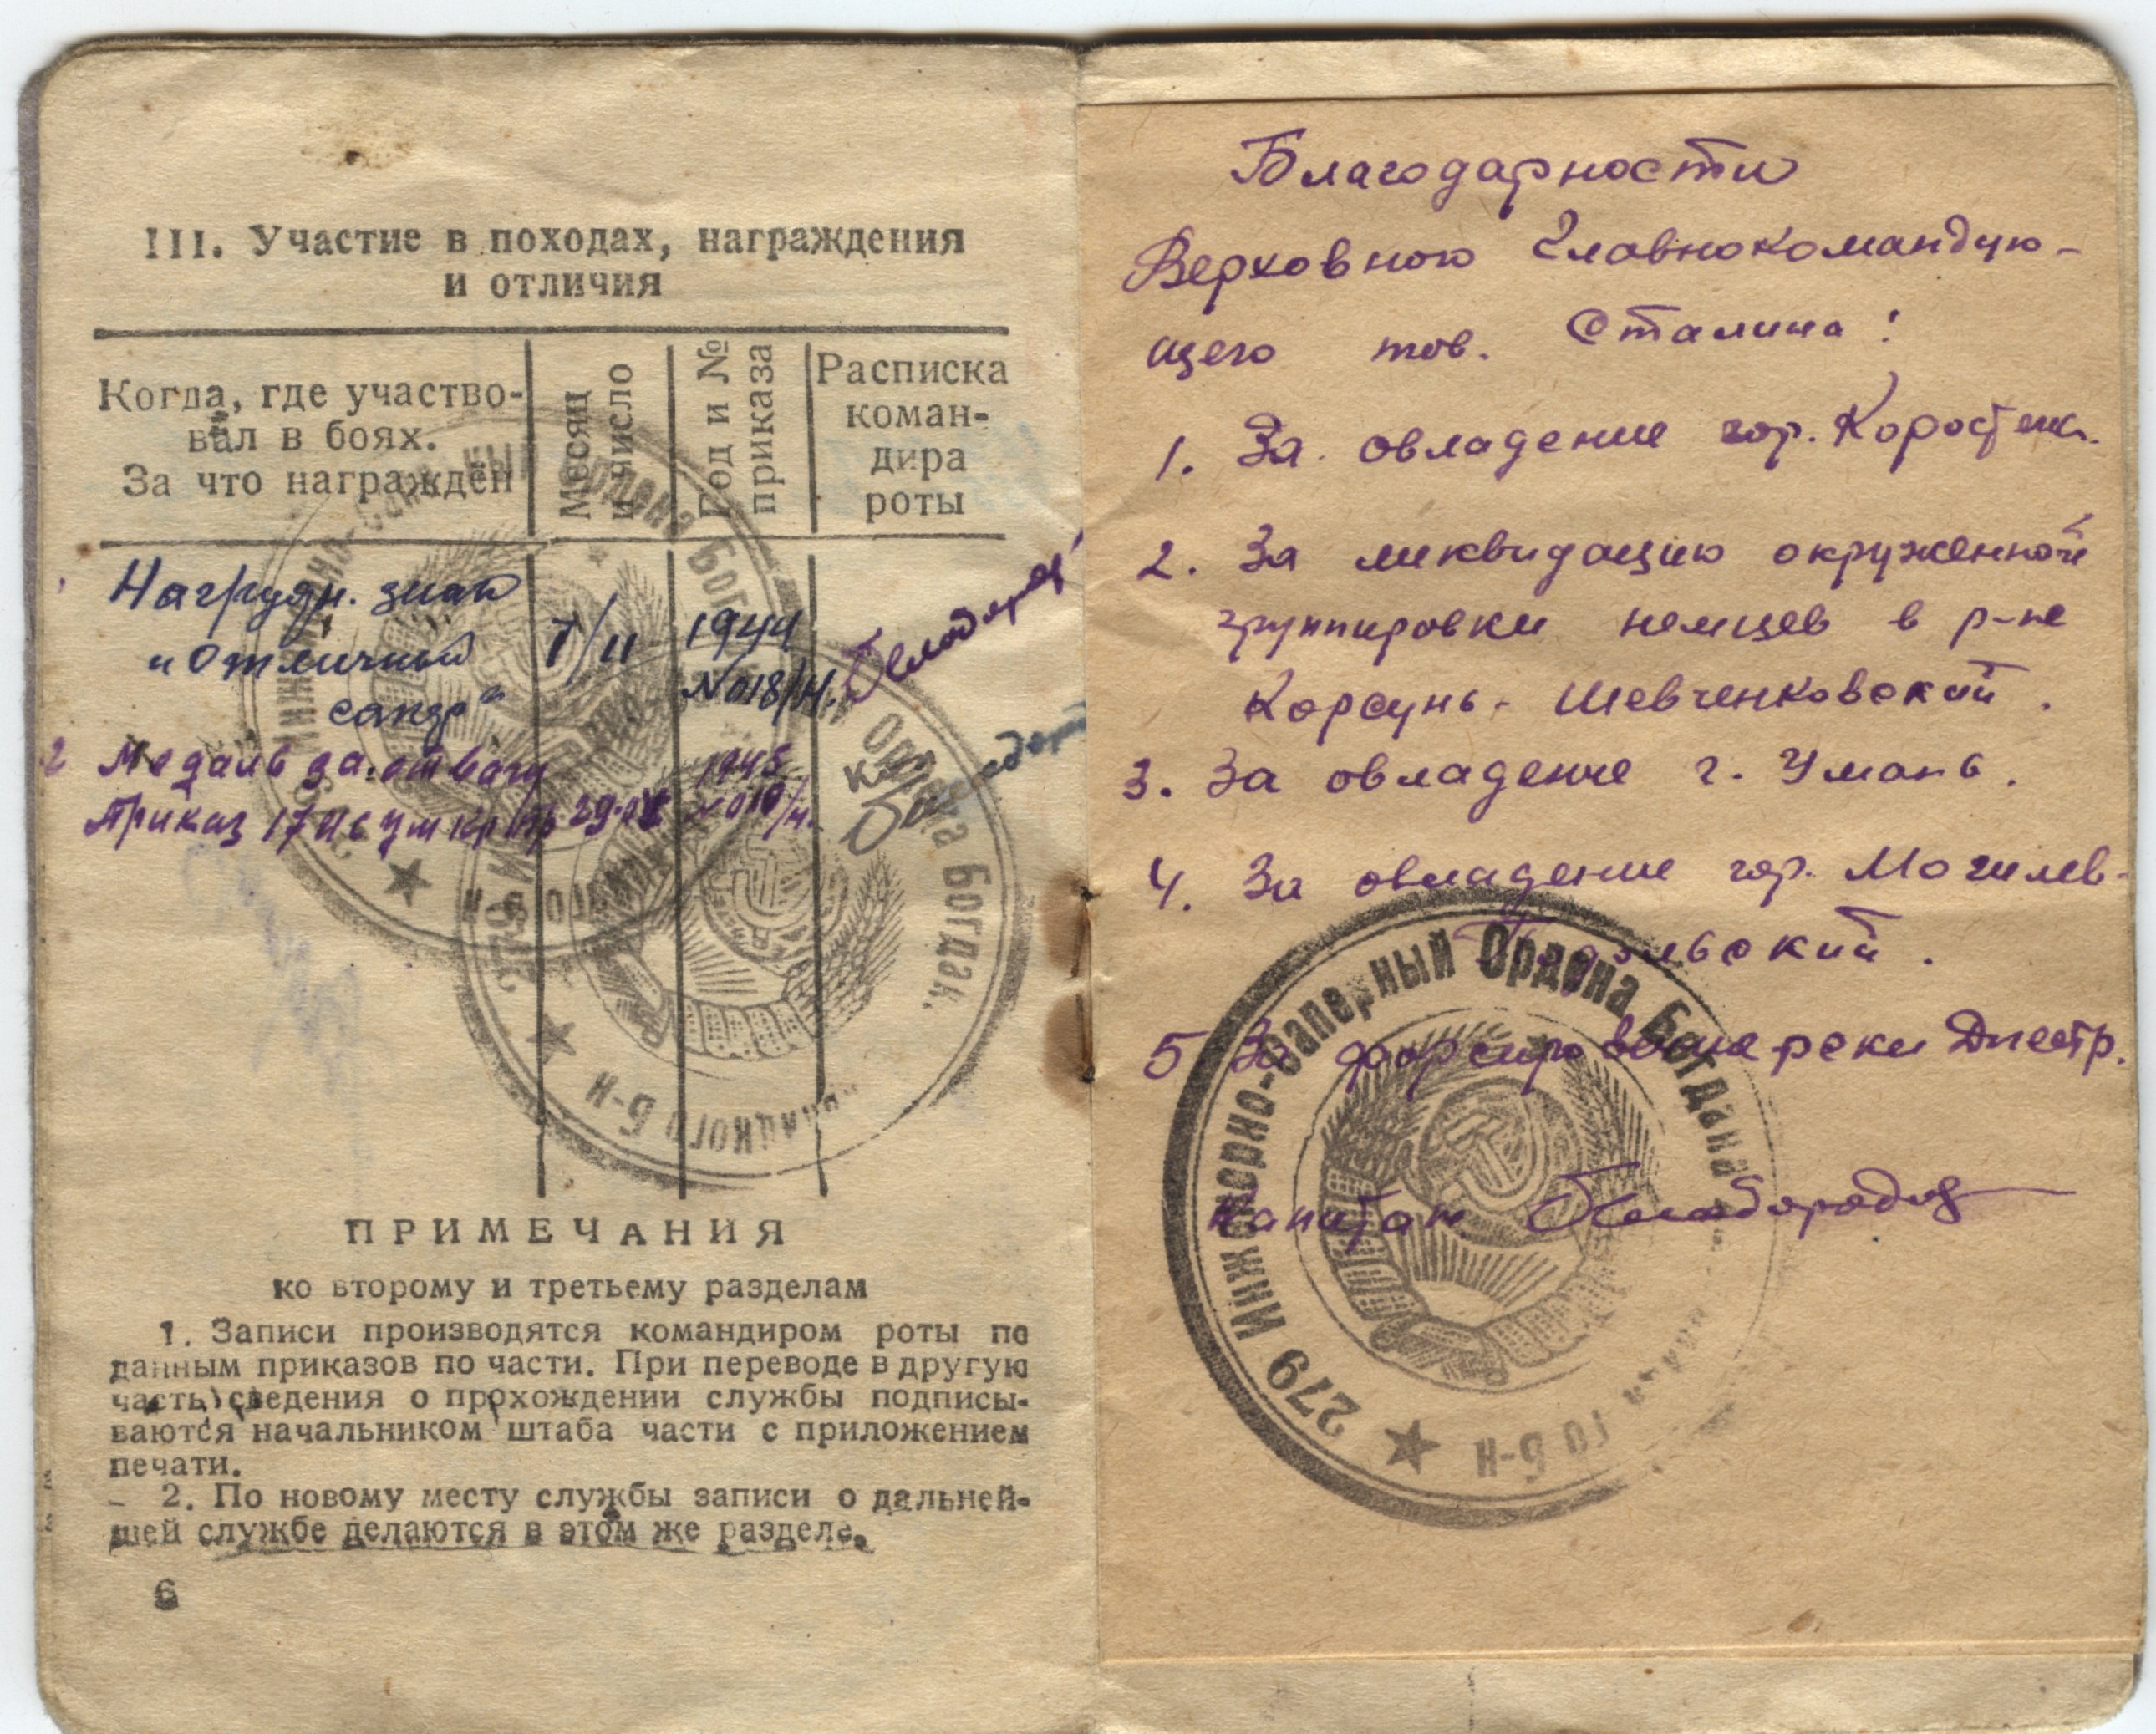 III. Участие в походах, награждения
и отличия
Когда, где участво-
вал в боях.
За что награжден
Месяц
и число
Год и №
приказа
Расписка
коман-
дира
роты
Нагрудн. знак
"Отличный
сапер"
7/II
1944
№018/н.
2 Медаль за отвагу
Приказ 17
1945
010/н.
ПРИМЕЧАНИЯ
ко второму и третьему разделам
1. Записи производятся командиром роты по
данным приказов по части. При переводе в другую
часть, сведения о прохождении службы подписы-
ваются начальником штаба части с приложением
печати.
2. По новому месту службы записи о дальней-
шей службе делаются в этом же разделе.
6
Благодарности
Верховного Главнокомандую-
щего тов. Сталина!
1. За овладение гор. Коростень.
2. За ликвидацию окруженной
группировки немцев в р-не
Корсунь-Шевченковский.
3. За овладение г. Умань.
4. За овладение гор. Могилев-
Подольский.
5 За форсирование реки Днестр.
Капитан Белобородов
279 Инженерно-Саперный Ордена Богдана
б-н